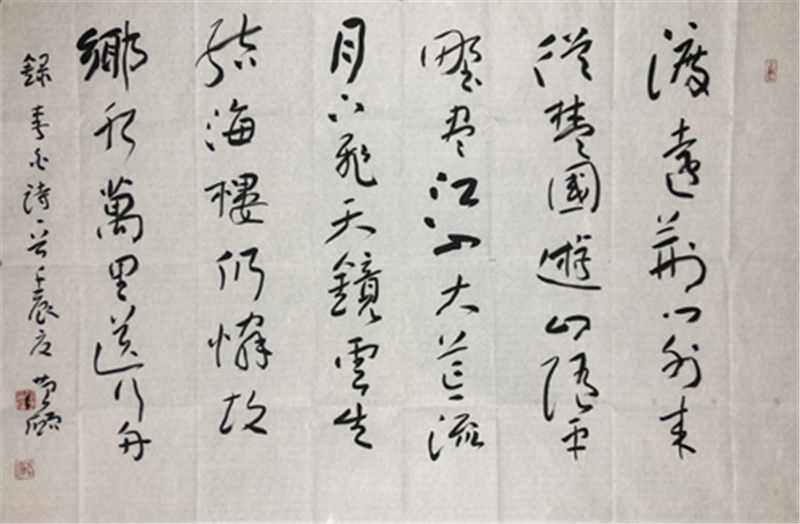 渡遠荊門外來
從楚國遊山隨平
野盡江入大荒流
月下飛天鏡雲生
結海樓仍憐故
鄉水萬里送行舟
錄李白詩一首壬辰夏